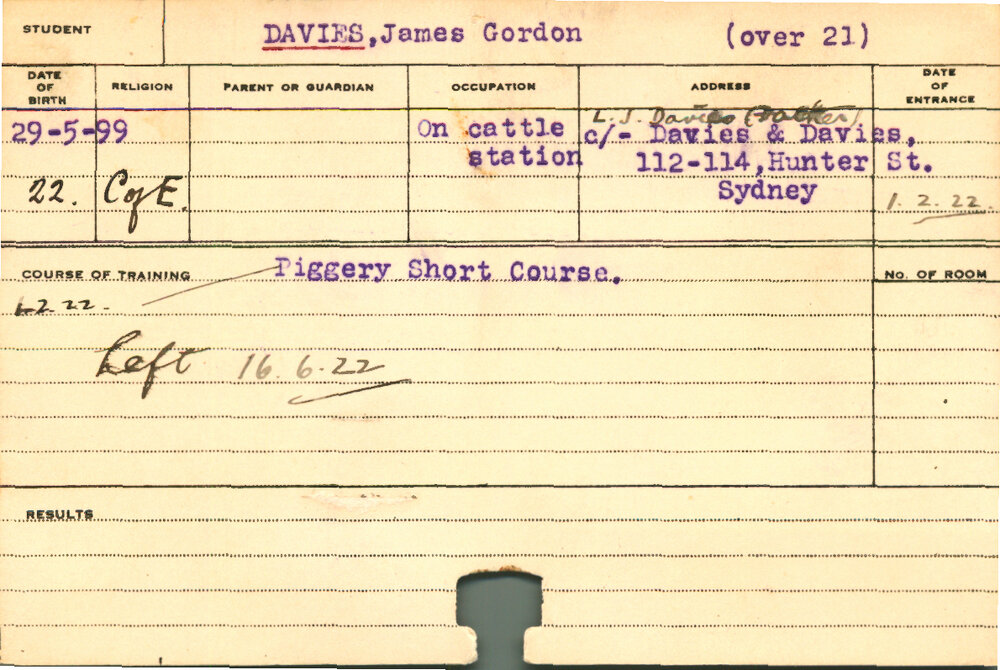 STUDENT
DAVIES, James Gordon (over 21)
DATE OF BIRTH
RELIGION
PARENT OR GUARDIAN
OCCUPATION
ADDRESS
DATE OF ENTRANCE
29-5-99
22.
C of E.
On cattle
station
L. J. Davies (Father)
c/- Davies & Davies,
112-114, Hunter St.
Sydney
1. 2. 22.
COURSE OF TRAINING
Piggery Short Course.
No. OF ROOM
1.2.22.
Left 16.6.22
RESULTS